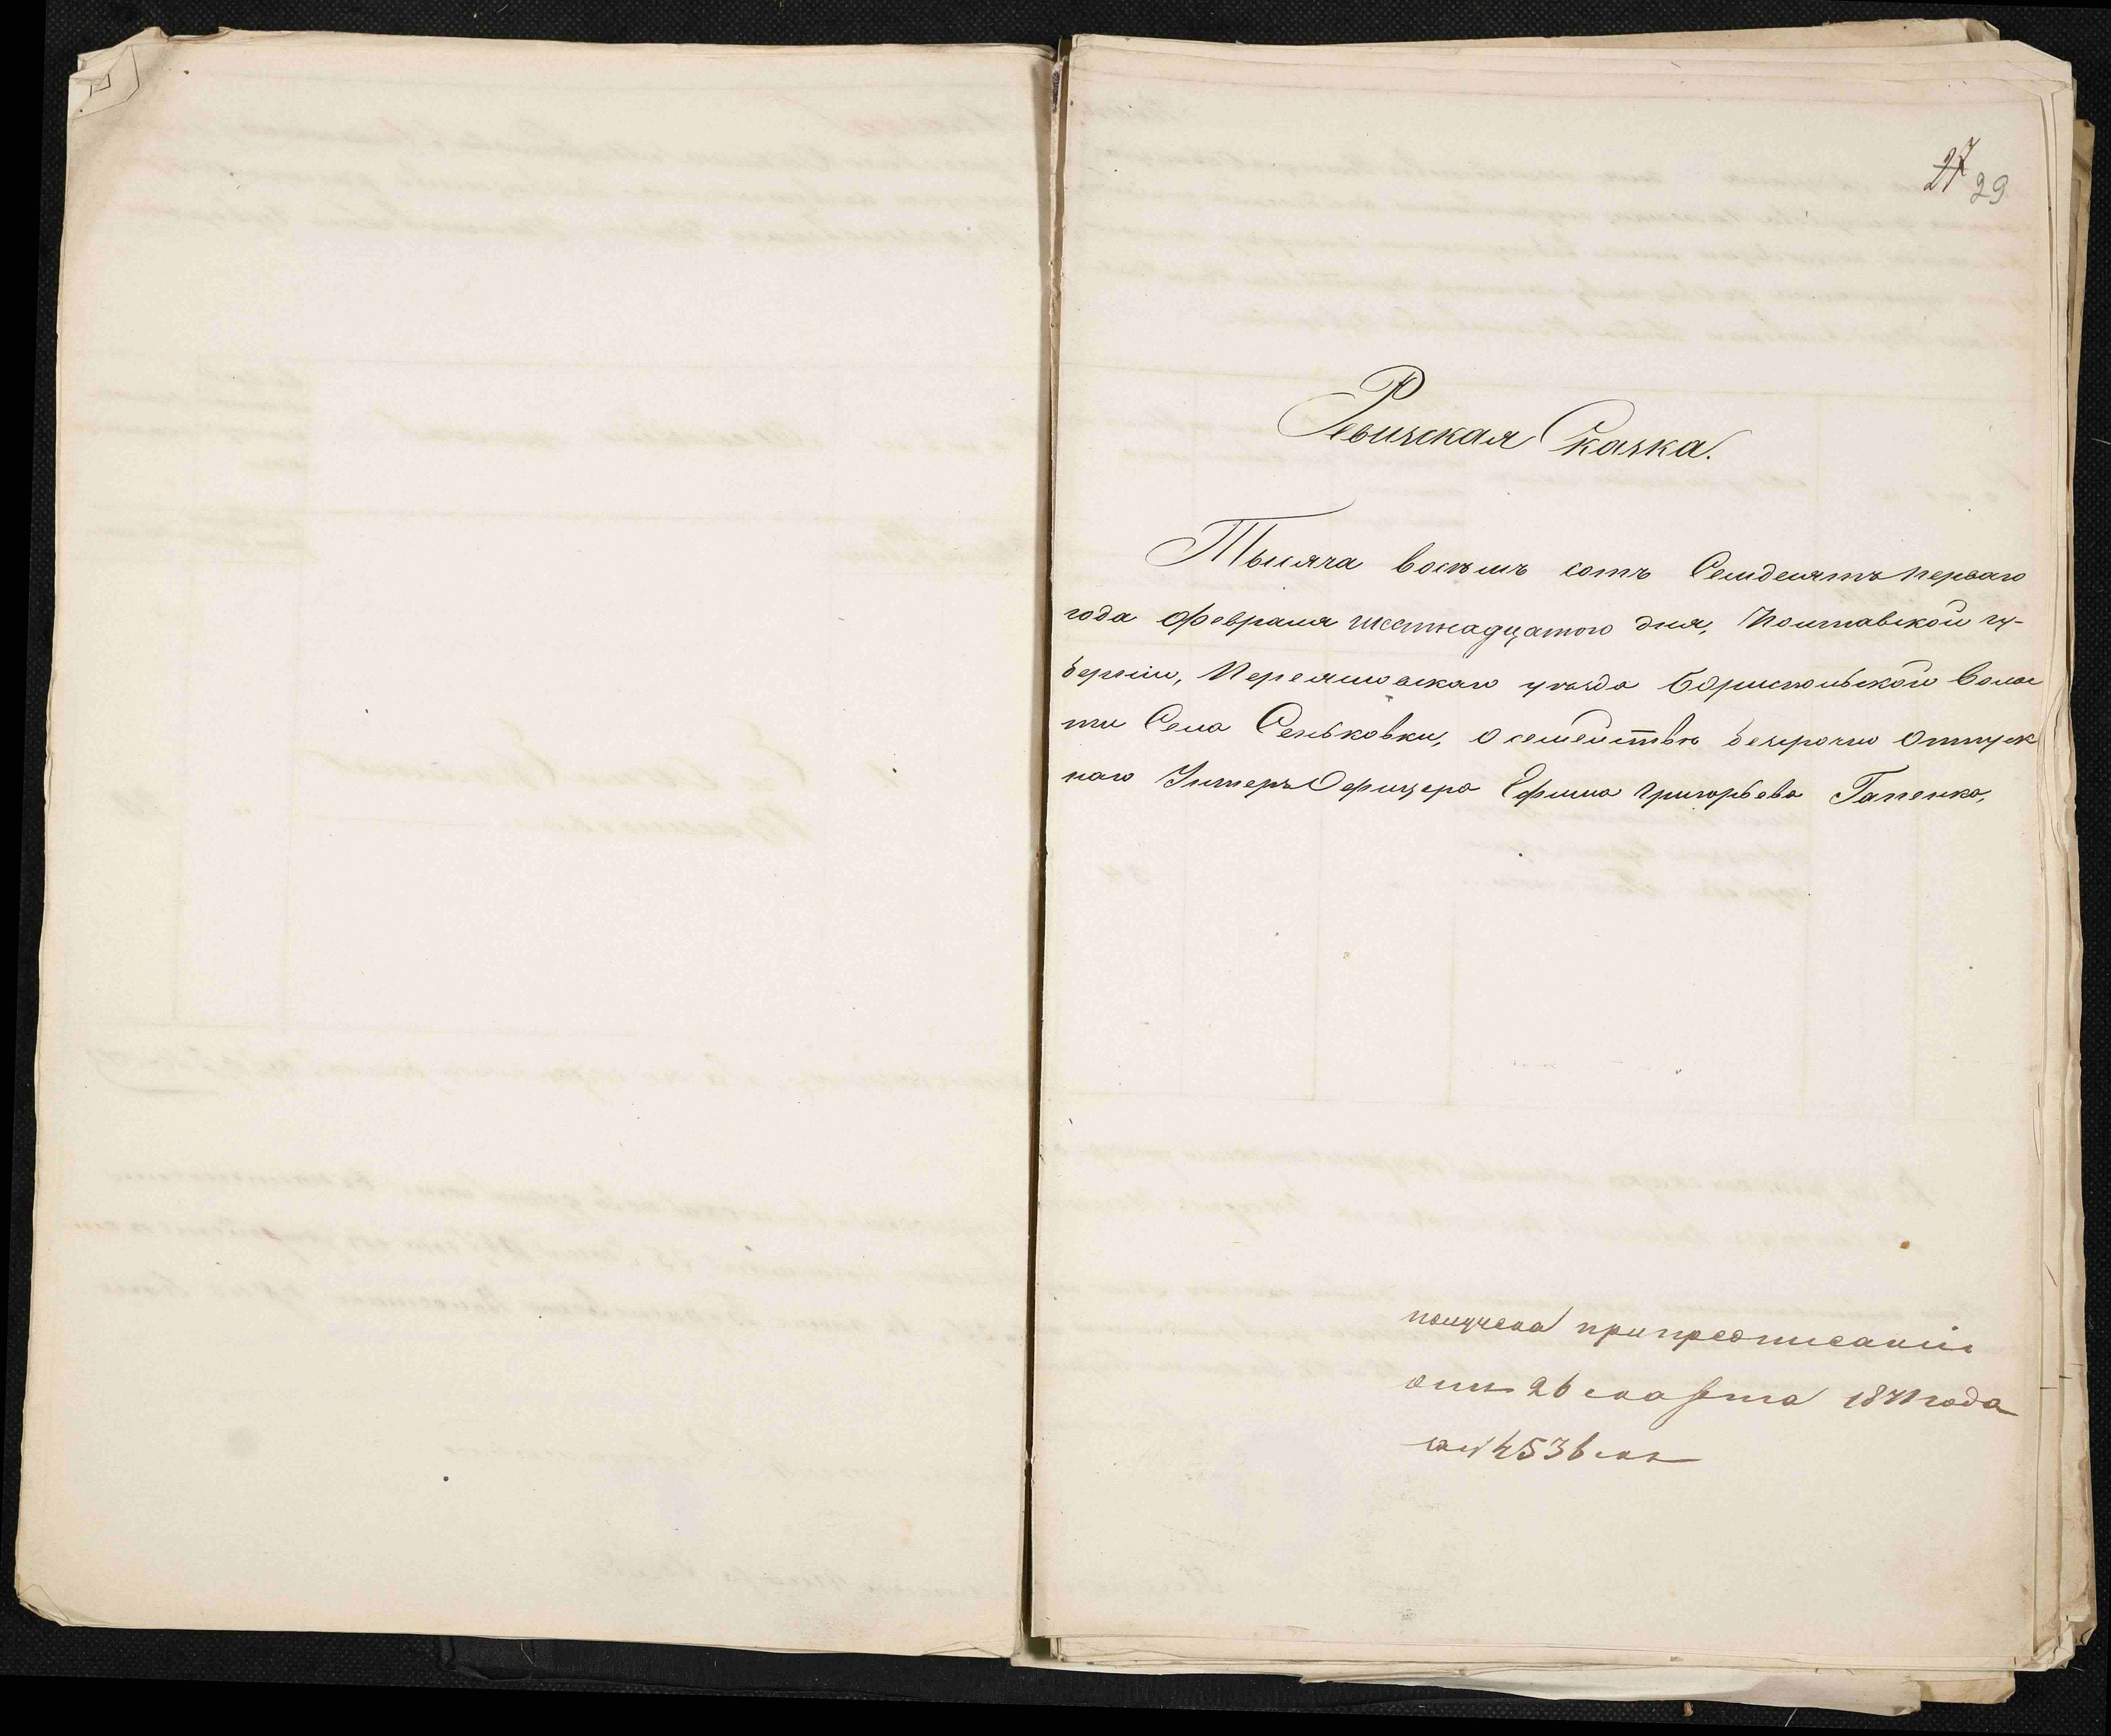 27 29
Ревизская Сказка.
Тысяча восемь сотъ Семдесятъ перваго
года февраля шестнадцатого дня, Полтавской гу-
берніи, Переяславскаго уѣзда Бориспольской волос
ти Села Сеньковки, о семействѣ безсрочно отпуск
наго Унтеръ Офицера Ефима Григорьева Гапенко,
получена при предписаніи
отъ 26 марта 1871 года